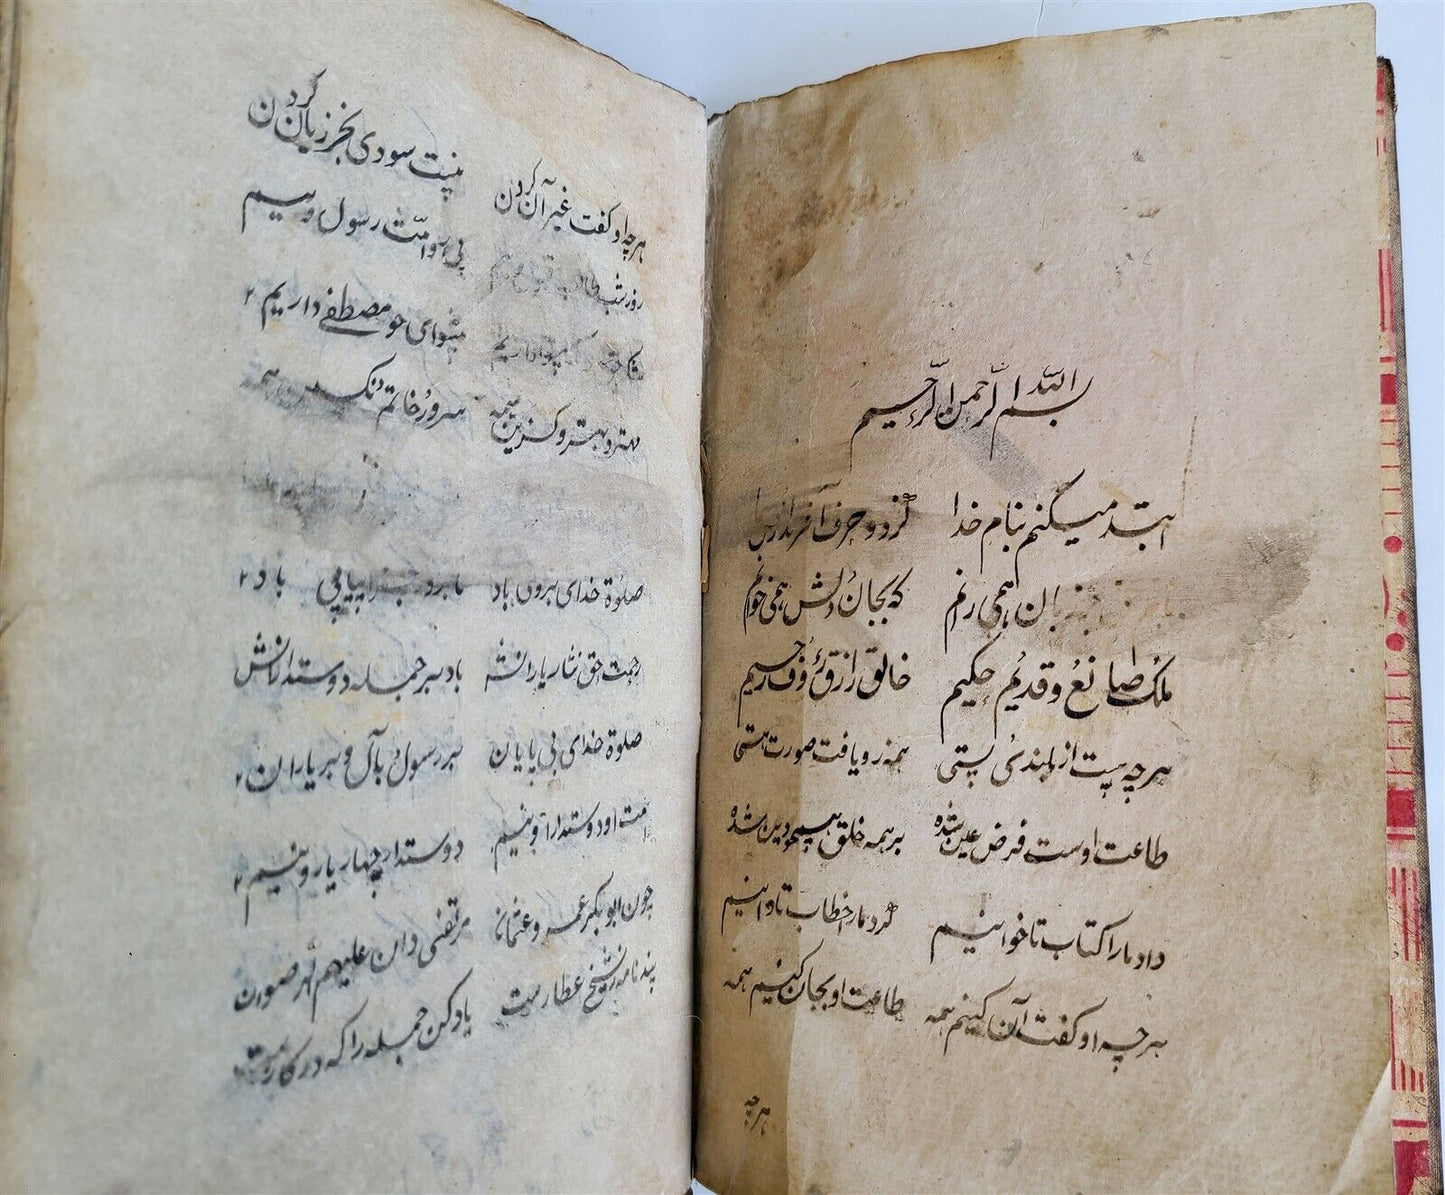 بسم الله الرحمن الرحیم
ابتدا میکنم بنام خدا کز دو حرف آفرید
همی رانم که بجان و دلش همی خوانم
ملک صانع و قدیم حکیم خالق رازق رؤف رحیم
هرچه هست از بلندی پستی همه زو یافت صورت هستی
طاعت اوست فرض عین شده بر همه خلق همچو دین شده
داد ما را کتاب تا خوانیم کرد ما را خطاب تا دانیم
هرچه او کفت آن کنیم همه طاعت او بجان کنیم همه
هرچه
هرچه او کفت غیر آن نکردن نیست سودی بجز زیان کردن
روز شب پی رو امت رسول وییم
پیشوای چو مصطفی داریم
مهتر و بهتر و کزین همه سرور خاتم همه
صلوة خدای برون باد باد
رحمت حق نثار یارانش باد بر جمله دوستدارانش
صلوة خدای بی پایان بر رسول و بآل و بر یاران
امت او دوستدار اوییم دوستدار چهار یار وییم
چون ابو بکر عمر و عثمان مرتضی دان علیهم
پندنامه ز شیخ عطارست یاد کن جمله را که در کارست